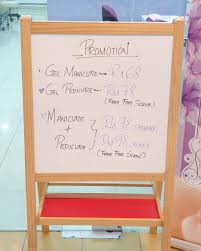 PROMOTION
GEL MANICURE → RM68
GEL PEDICURE → RM78
(FREE FOOT SCRUB)
MANICURE
+
PEDICURE
(FREE FOOT SCRUB)